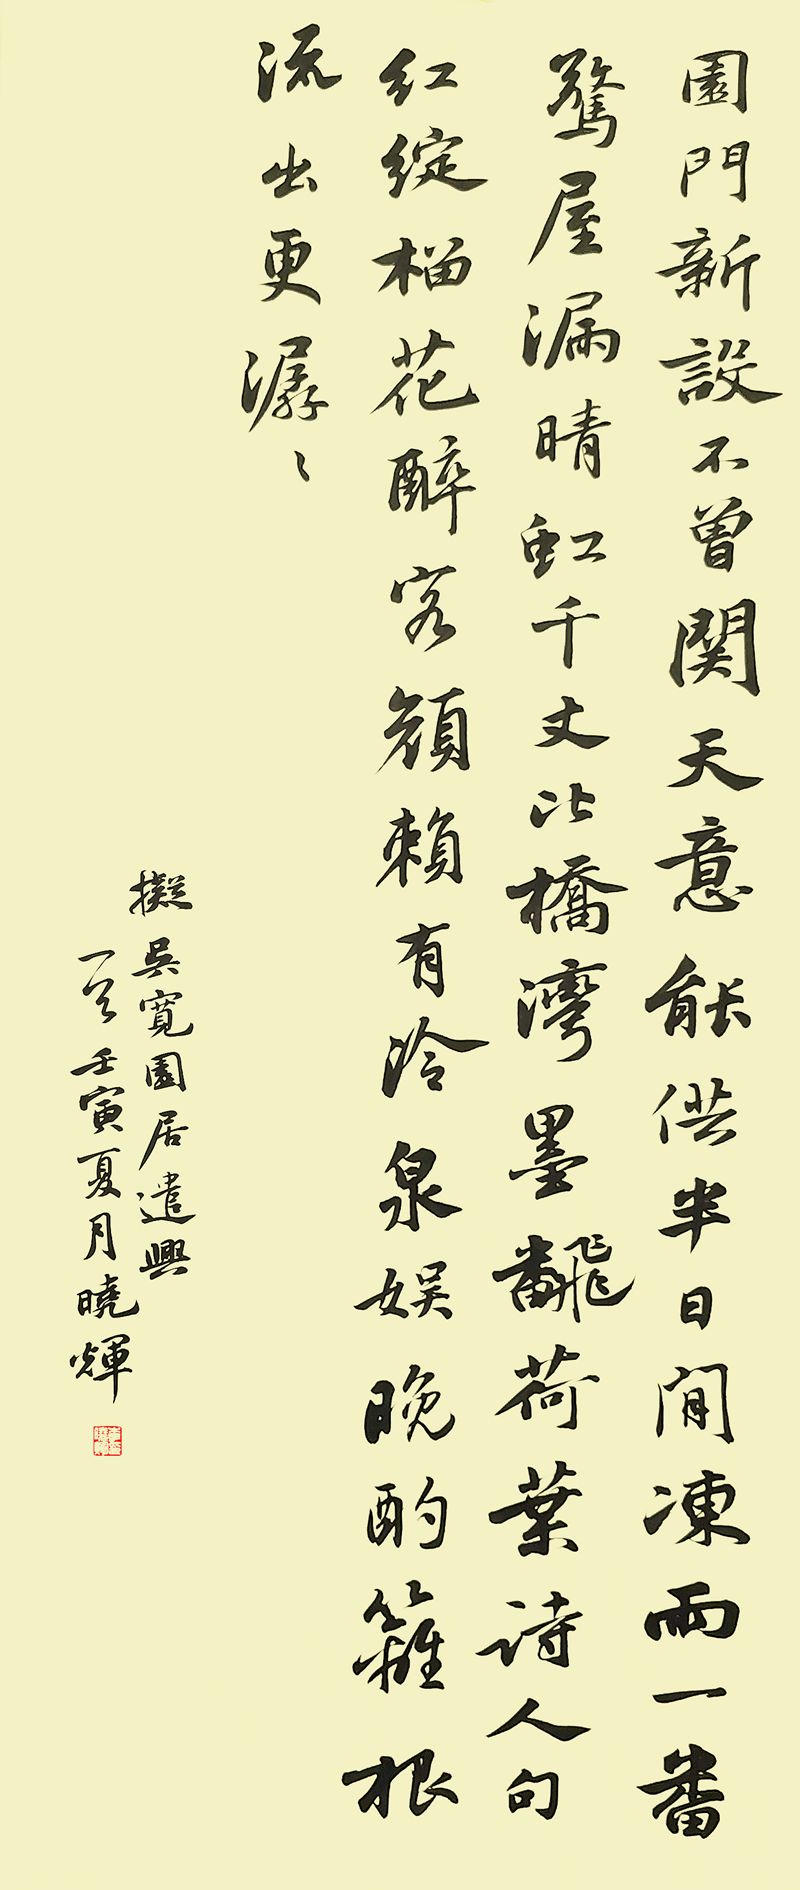 園門新設不曾関天意能供半日間凍雨一番
驚屋漏晴虹千丈比橋灣墨翻荷葉詩人句
紅綻榴花醉客顔賴有冷泉娱晚酌籬根
流出更潺〻
擬吳寬園居遣興
一首壬寅夏月曉輝